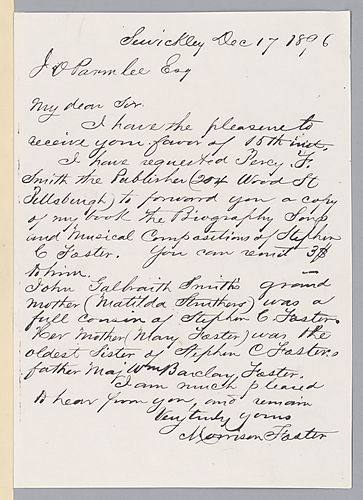 Sewickley Dec 17 1896
J O Parmlee Esq
My dear Sir.
I have the pleasure to
receive your favor of 15th inst.
I have requested Percy F.
Smith the Publisher (204 Wood St
Pittsburgh) to forward you a copy
of my book The Biography Songs
and Musical Compositions of Stephen
C Foster. You can remit 3$
to him.
John Galbraith Smith's grand
mother (Matilda Struthers) was a
full cousin of Stephen C. Foster.
Her mother (Mary Foster) was the
oldest sister of Stephen C Fosters
father Maj Wm Barclay Foster.
I am much pleased
to hear from you, and remain
Very truly yours
Morrison Foster